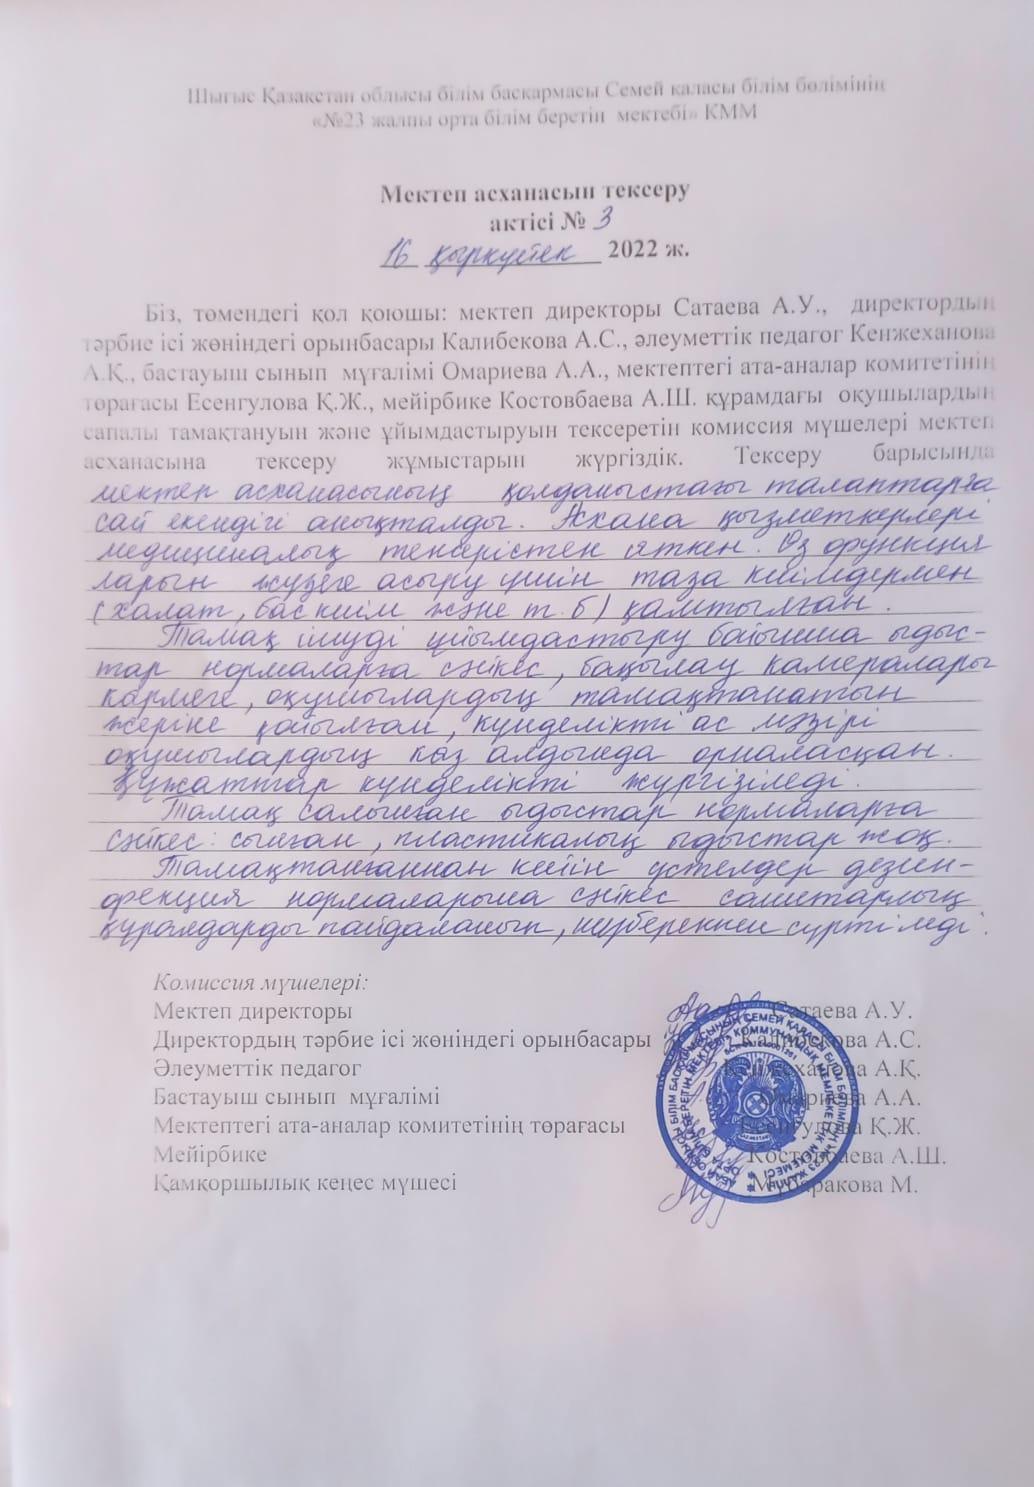 Шығыс Қазақстан облысы білім басқармасы Семей қаласы білім бөлімінің
«№23 жалпы орта білім беретін мектебі» КММ
Мектеп асханасын тексеру
актісі № 3
16 қыркүйек 2022 ж.
Біз, төмендегі қол қоюшы: мектеп директоры Сатаева А.У., директордың
тәрбие ісі жөніндегі орынбасары Калибекова А.С., әлеуметтік педагог Кенжеханова
А.Қ., бастауыш сынып мұғалімі Омариева А.А., мектептегі ата-аналар комитетінің
төрағасы Есенгулова Қ.Ж., мейірбике Костовбаева А.Ш. құрамдағы оқушылардың
сапалы тамақтануын және ұйымдастыруын тексеретін комиссия мүшелері мектеп
асханасына тексеру жұмыстарын жүргіздік. Тексеру барысында
мектеп асханасының қолданыстағы талаптарға
сай екендігі анықталды. Асхана қызметкерлері
медициналық тексерістен өткен. Өз функция
ларын жүзеге асыру үшін таза киімдермен
(халат, бас киім және т.б) қамтылған.
Тамақ ішуді ұйымдастыру бойынша ыдыс-
тар нормаларға сәйкес, бақылау камералары
көрмеге, оқушылардың тамақтанатын
жеріне қойылған, күнделікті ас мәзірі
оқушылардың көз алдында орналасқан.
Құжаттар күнделікті жүргізіледі.
Тамақ салынған ыдыстар нормаларға
сәйкес: сынған, пластикалық ыдыстар жоқ.
Тамақтанғаннан кейін үстелдер дезин-
фекция нормаларына сәйкес санитарлық
құралдарды пайдаланып, шүберекпен сүртіледі.
Комиссия мүшелері:
Мектеп директоры Сатаева А.У.
Директордың тәрбие ісі жөніндегі орынбасары Калибекова А.С.
Әлеуметтік педагог Кенжеханова А.Қ.
Бастауыш сынып мұғалімі Омариева А.А.
Мектептегі ата-аналар комитетінің төрағасы Есенгулова Қ.Ж.
Мейірбике Костовбаева А.Ш.
Қамқоршылық кеңес мүшесі Мубаракова М.